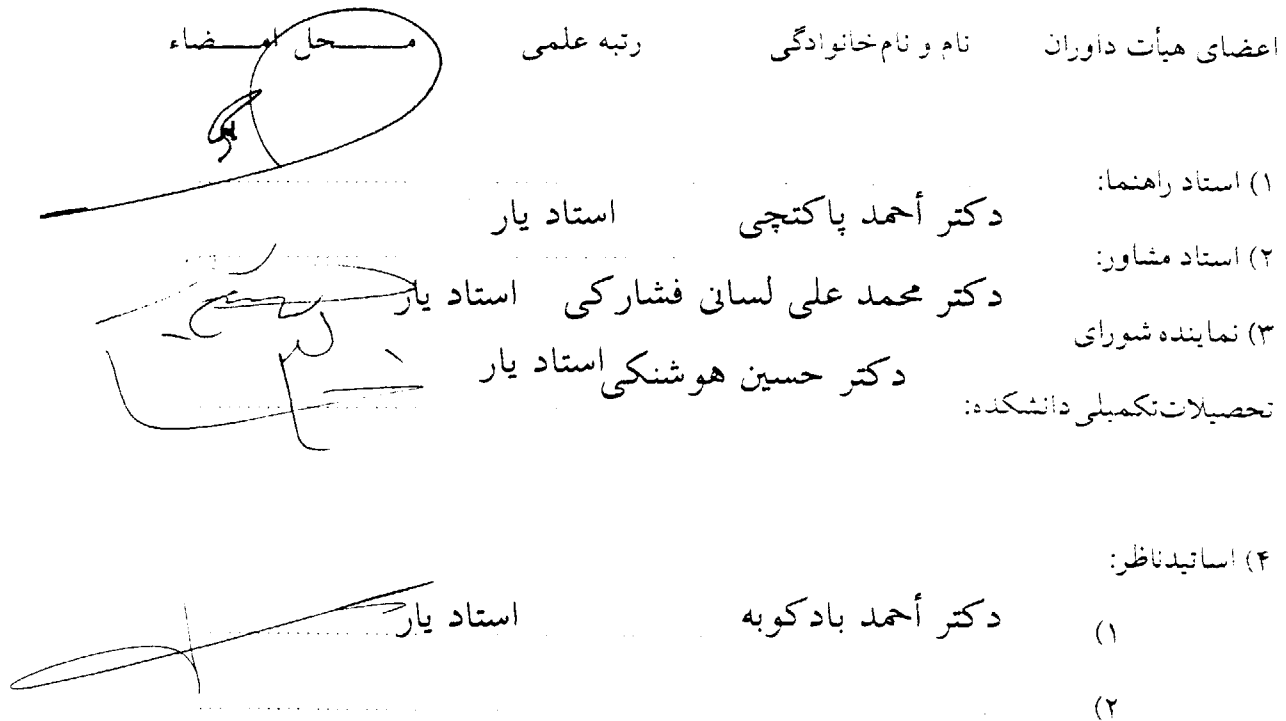 اعضای هیأت داوران نام و نام‌خانوادگی رتبه علمی مـــحل امــضاء
۱) استاد راهنما:
دکتر أحمد پاکتچی استاد یار
۲) استاد مشاور:
دکتر محمد علی لسانی فشارکی استاد یار
۳) نماینده شورای
دکتر حسین هوشنکی استاد یار
تحصیلات‌تکمیلی دانشکده:
۴) اساتیدناظر:
۱) دکتر أحمد بادکوبه استاد یار
۲)